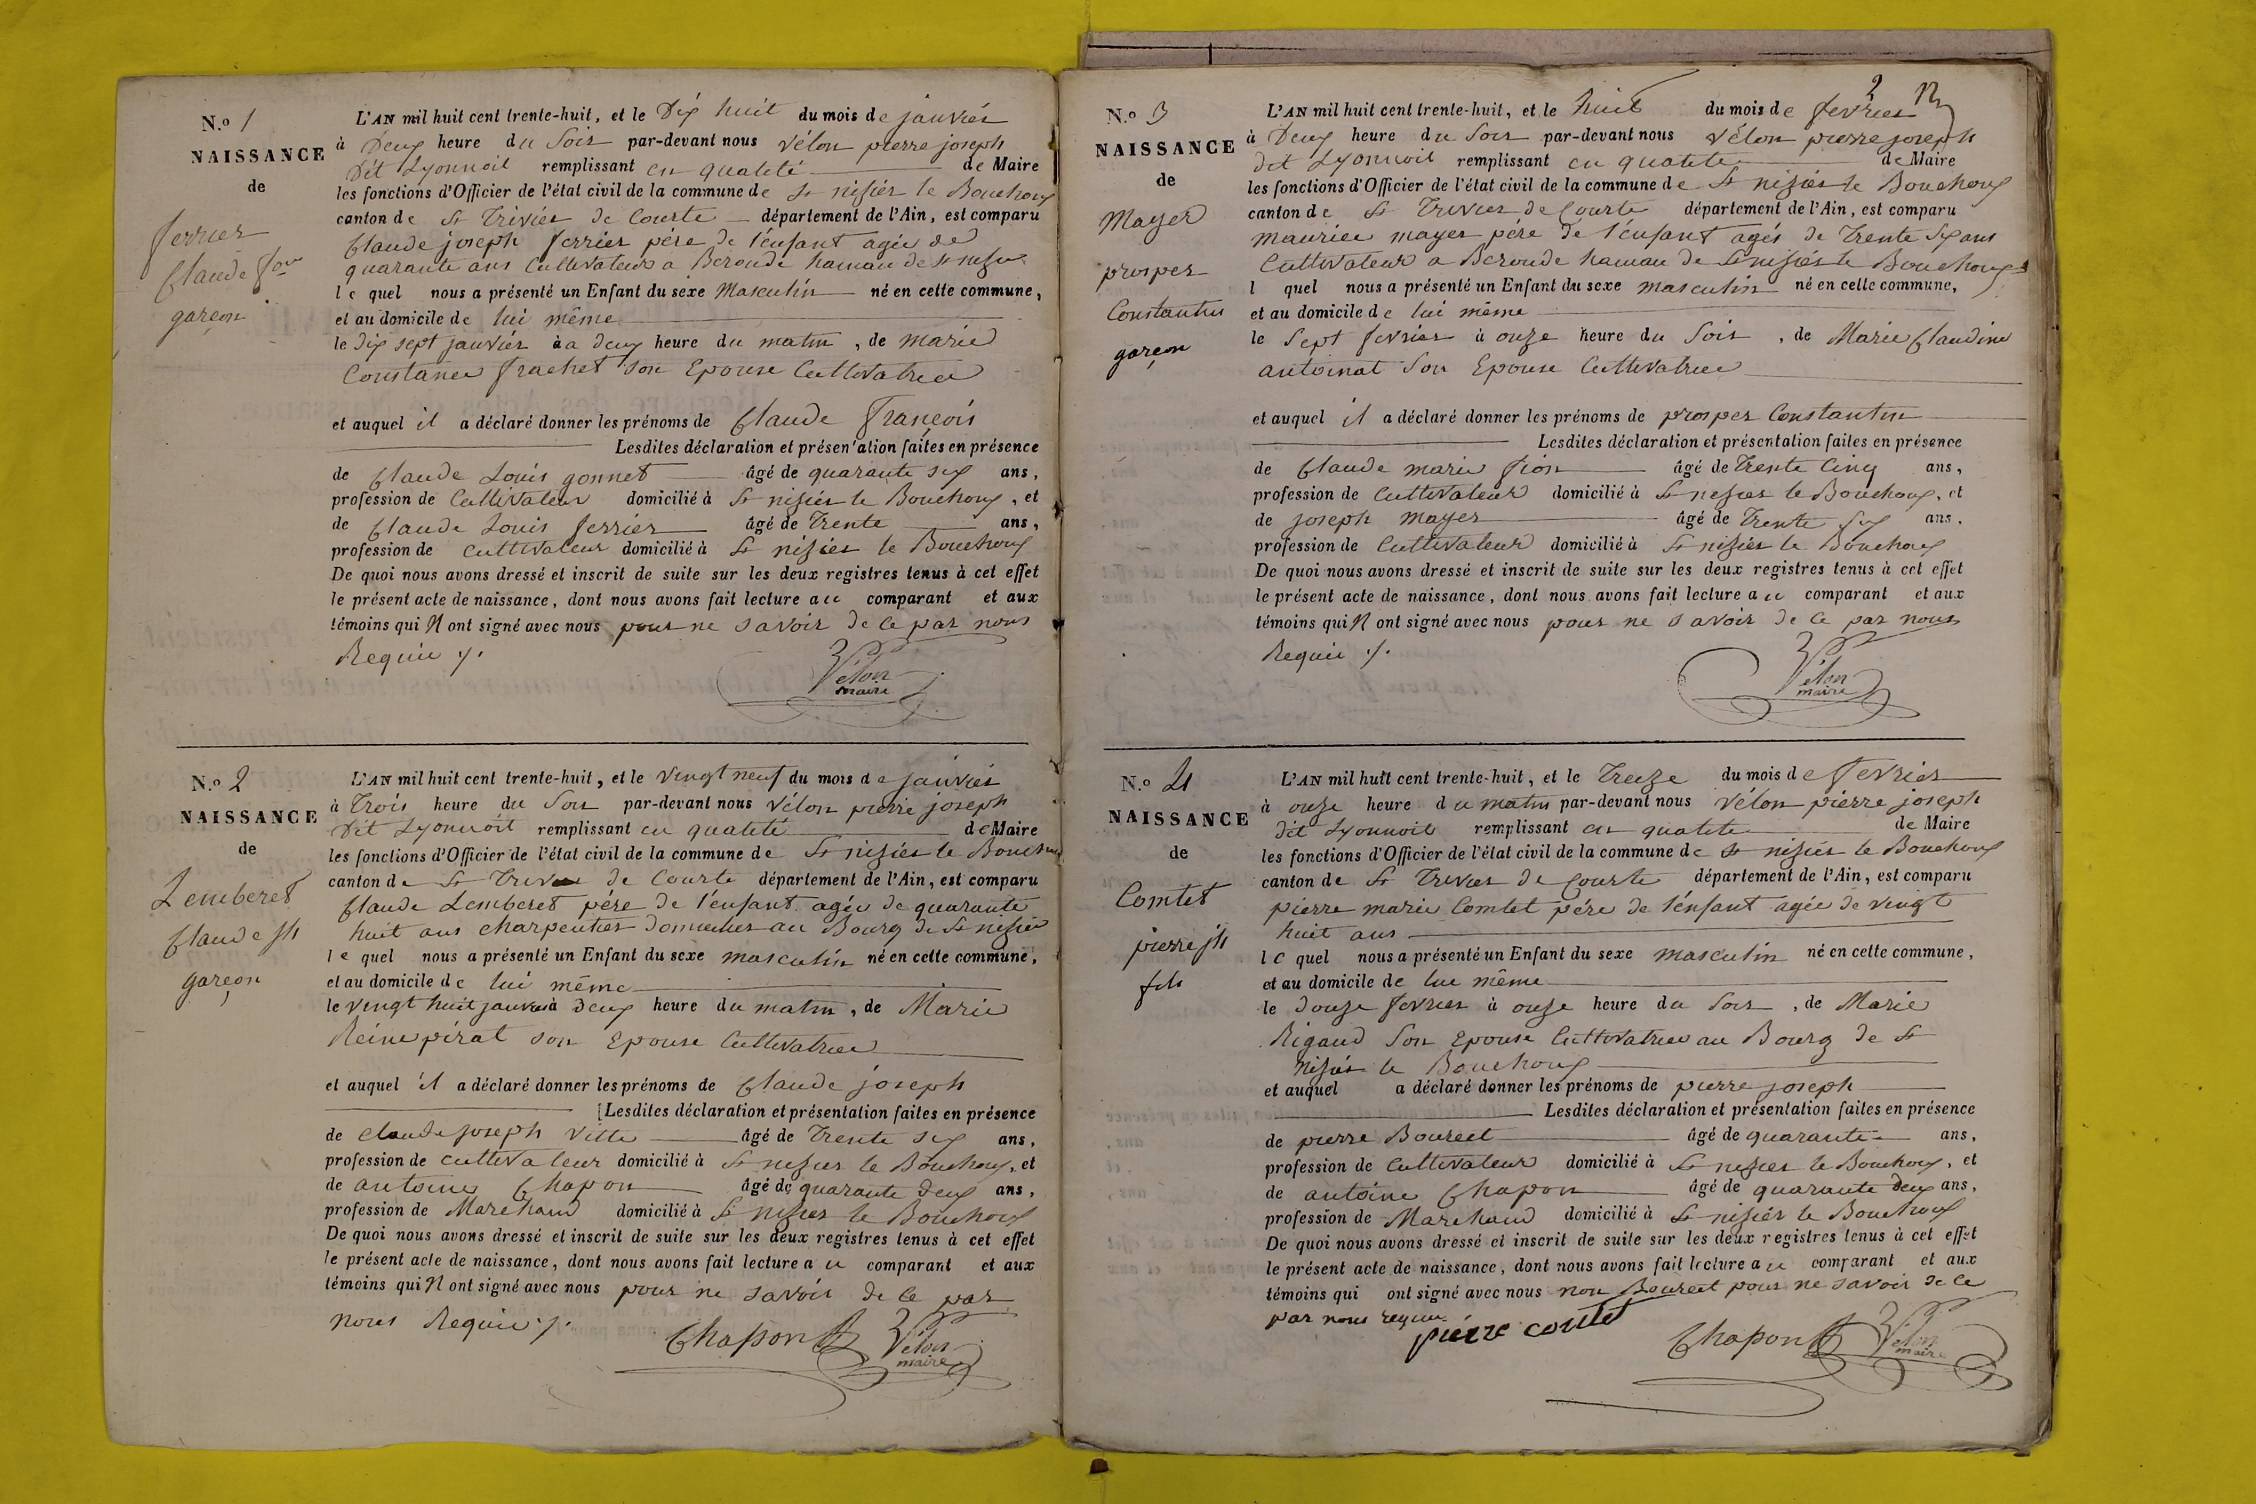 N.o 1
NAISSANCE
de
ferrier
Claude fois
garçon
L'AN mil huit cent trente-huit, et le Dix huit du mois de janvier
à Deux heure du Soir par-devant nous Vélon pierre joseph
Dit Lyonnoit remplissant en qualité de Maire
les fonctions d'Officier de l'état civil de la commune de St nisiér le Bouchoux
canton de St Triviér de Courte département de l'Ain, est comparu
Claude joseph ferrier pére de l'énfant agée de
quarante ans Cultivateur a Beroude hamau de St nisier
le quel nous a présenté un Enfant du sexe Masculin né en cette commune,
et au domicile de lui même
le dix sept janviér à a deux heure du matin, de marie
Constance frachet son Epouse Cultivatrice
et auquel il a déclaré donner les prénoms de Claude François
Lesdites déclaration et présen'ation faites en présence
de Claude Louis gonnet âgé de quarante six ans,
profession de Cultivateur domicilié à St nisiér le Bouchoux, et
de Claude Louis ferrier âgé de Trente ans,
profession de Cultivateur domicilié à St nisiér le Bouchoux
De quoi nous avons dressé et inscrit de suite sur les deux registres tenus à cet effet
le présent acte de naissance, dont nous avons fait lecture au comparant et aux
témoins qui N ont signé avec nous pour ne savoir de ce par nous
Requie ./.
Vélon
maire
N.o 2
NAISSANCE
de
Lemberet
Claude jh
garçon
L'AN mil huit cent trente-huit, et le vingt neuf du mois de janviér
à Trois heure du Soir par-devant nous Vélon pierre joseph
Dit Lyonnoit remplissant en qualité de Maire
les fonctions d'Officier de l'état civil de la commune de St nisiér le Bouchoux
canton de St Trivier de Courte département de l'Ain, est comparu
Claude Lemberet pére de l'énfant agée de quarante
huit ans charpentier Domicilier au Bourg de St nisier
le quel nous a présenté un Enfant du sexe masculin né en cette commune,
et au domicile de lui même
le vingt huit janvier à deux heure du matin, de Marie
Reine pirat son Epouse Cultivatrice
et auquel il a déclaré donner les prénoms de Claude joseph
Lesdites déclaration et présentation faites en présence
de Claude joseph Vitte âgé de Trente six ans,
profession de cultivateur domicilié à St nisier le Bouchoux, et
de antoine Chapon âgé de quarante deux ans,
profession de Marchand domicilié à St nisier le Bouchoux
De quoi nous avons dressé et inscrit de suite sur les deux registres tenus à cet effet
le présent acte de naissance, dont nous avons fait lecture au comparant et aux
témoins qui N ont signé avec nous pour ne savoir de ce par
nous Requie ./.
Chapon
Vélon
maire
2
N.o 3
NAISSANCE
de
Mayer
prosper
Constantin
garçon
L'AN mil huit cent trente-huit, et le huit du mois de fevrier
à Deux heure du Soir par-devant nous Vélon pierre joseph
dit Lyonnoit remplissant en qualité de Maire
les fonctions d'Officier de l'état civil de la commune de St nisiér le Bouchoux
canton de St Trivier de Courte département de l'Ain, est comparu
maurice mayer pére de l'énfant agés de Trente six ans
Cultivateur a Beroude hamau de St nisiér le Bouchoux
l quel nous a présenté un Enfant du sexe masculin né en cette commune,
et au domicile de lui même
le Sept fevrier à onze heure du Soir, de Marie Claudine
antoinat Son Epouse Cultivatrice
et auquel il a déclaré donner les prénoms de prosper Constantin
Lesdites déclaration et présentation faites en présence
de Claude marie fion âgé de Trente Cinq ans,
profession de Cultivateur domicilié à St nisier le Bouchoux, et
de joseph mayer âgé de Trente six ans.
profession de Cultivateur domicilié à St nisiér le Bouchoux
De quoi nous avons dressé et inscrit de suite sur les deux registres tenus à cet effet
le présent acte de naissance, dont nous avons fait lecture au comparant et aux
témoins qui N ont signé avec nous pour ne savoir de ce par nous
Requie ./.
Vélon
maire
N.o 4
NAISSANCE
de
Comtet
pierre jh
fils
L'AN mil huit cent trente-huit, et le Treize du mois de fevrier
à onze heure du matin par-devant nous Vélon pierre joseph
dit Lyonnoit remplissant en qualité de Maire
les fonctions d'Officier de l'état civil de la commune de St nisiér le Bouchoux
canton de St Trivier de Courte département de l'Ain, est comparu
pierre marie Comtet pére de l'énfant agée de vingt
huit ans
le quel nous a présenté un Enfant du sexe masculin né en cette commune,
et au domicile de lui même
le douze fevrier à onze heure du Soir, de Marie
Rigaud Son Epouse Cultivatrice au Bourg de St
Nisiér le Bouchoux
et auquel a déclaré donner les prénoms de pierre joseph
Lesdites déclaration et présentation faites en présence
de pierre Boureet âgé de quarante ans,
profession de Cultivateur domicilié à St nisier le Bouchoux, et
de antoine Chapon âgé de quarante deux ans,
profession de Marchand domicilié à St nisiér le Bouchoux
De quoi nous avons dressé et inscrit de suite sur les deux registres tenus à cet effet
le présent acte de naissance, dont nous avons fait lecture au comparant et aux
témoins qui ont signé avec nous non Boureet pour ne savoir de ce
par nous requie.
pierre contet
Chapon
Vélon
maire